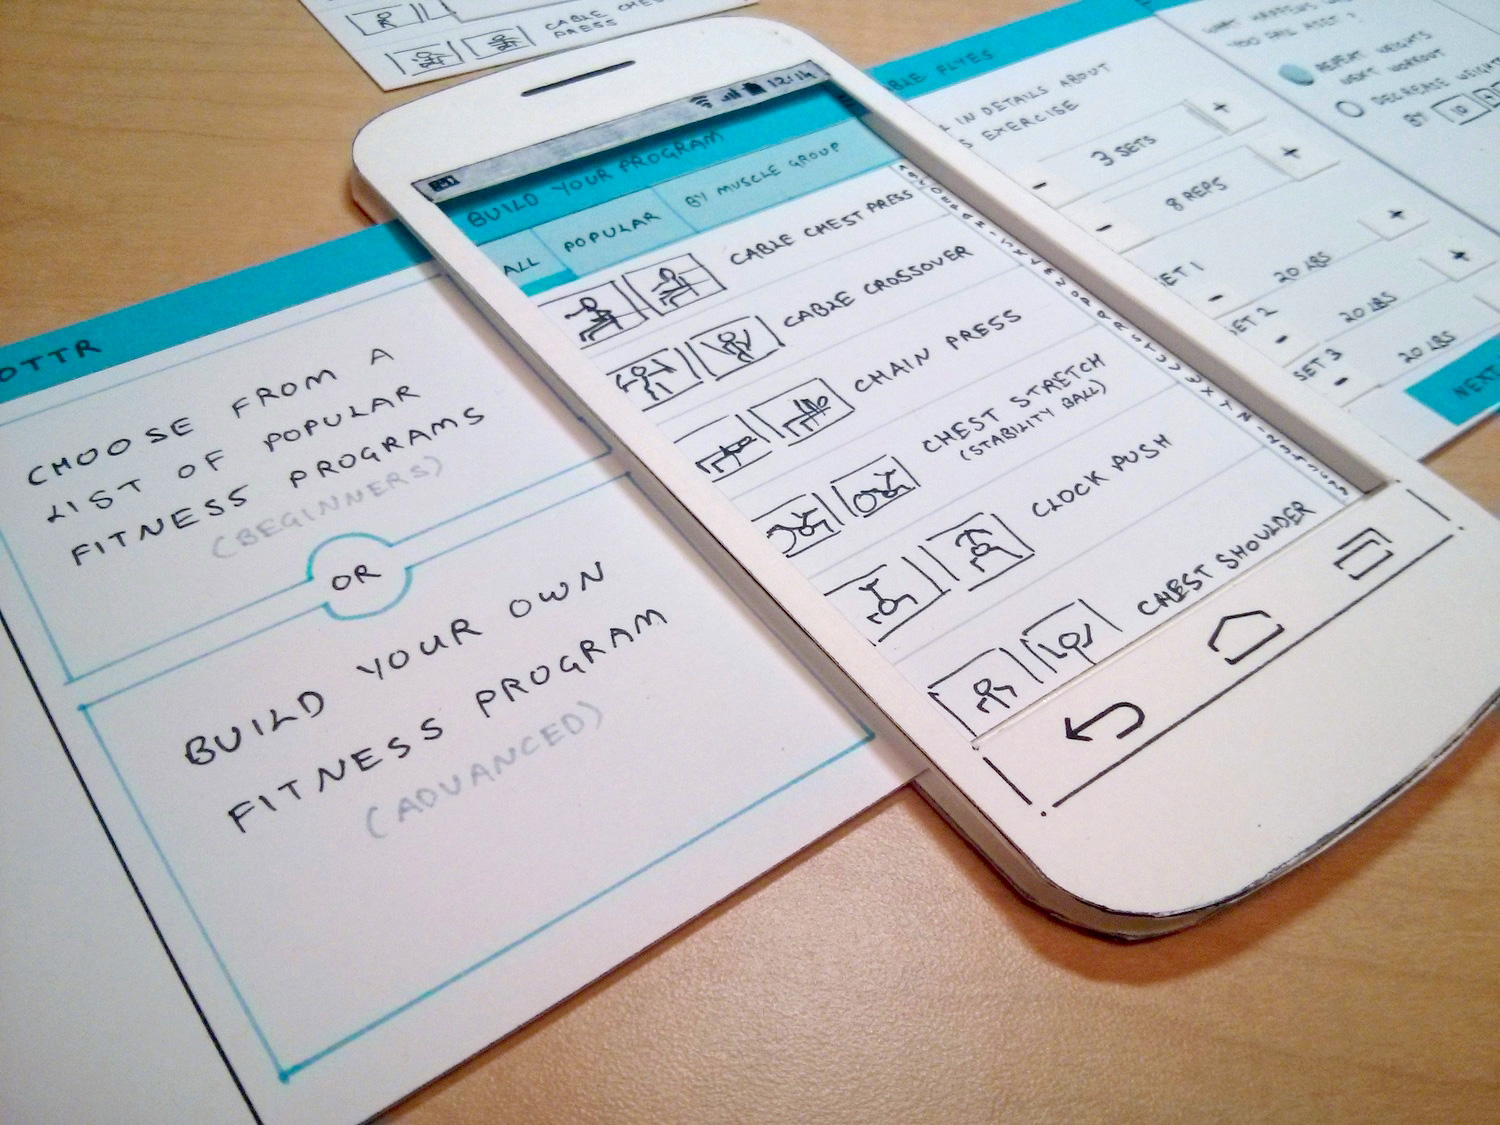 CABLE CHEST
PRESS
OTTR
CHOOSE FROM A
LIST OF POPULAR
FITNESS PROGRAMS
(BEGINNERS)
OR
BUILD YOUR OWN
FITNESS PROGRAM
(ADVANCED)
12:14
BUILD YOUR PROGRAM
ALL
POPULAR
BY MUSCLE GROUP
CABLE CHEST PRESS
CABLE CROSSOVER
CHAIN PRESS
CHEST STRETCH
(STABILITY BALL)
CLOCK PUSH
CHEST SHOULDER
FLYES
IN DETAILS ABOUT
EXERCISE
- 3 SETS +
- 8 REPS +
SET 1 - 20 LBS +
SET 2 - 20 LBS +
SET 3 - 20 LBS
NEXT
WHAT HAPPENS
YOU FAIL
REPEAT WEIGHTS
NEXT WORKOUT
DECREASE WEIGHT
BY 10